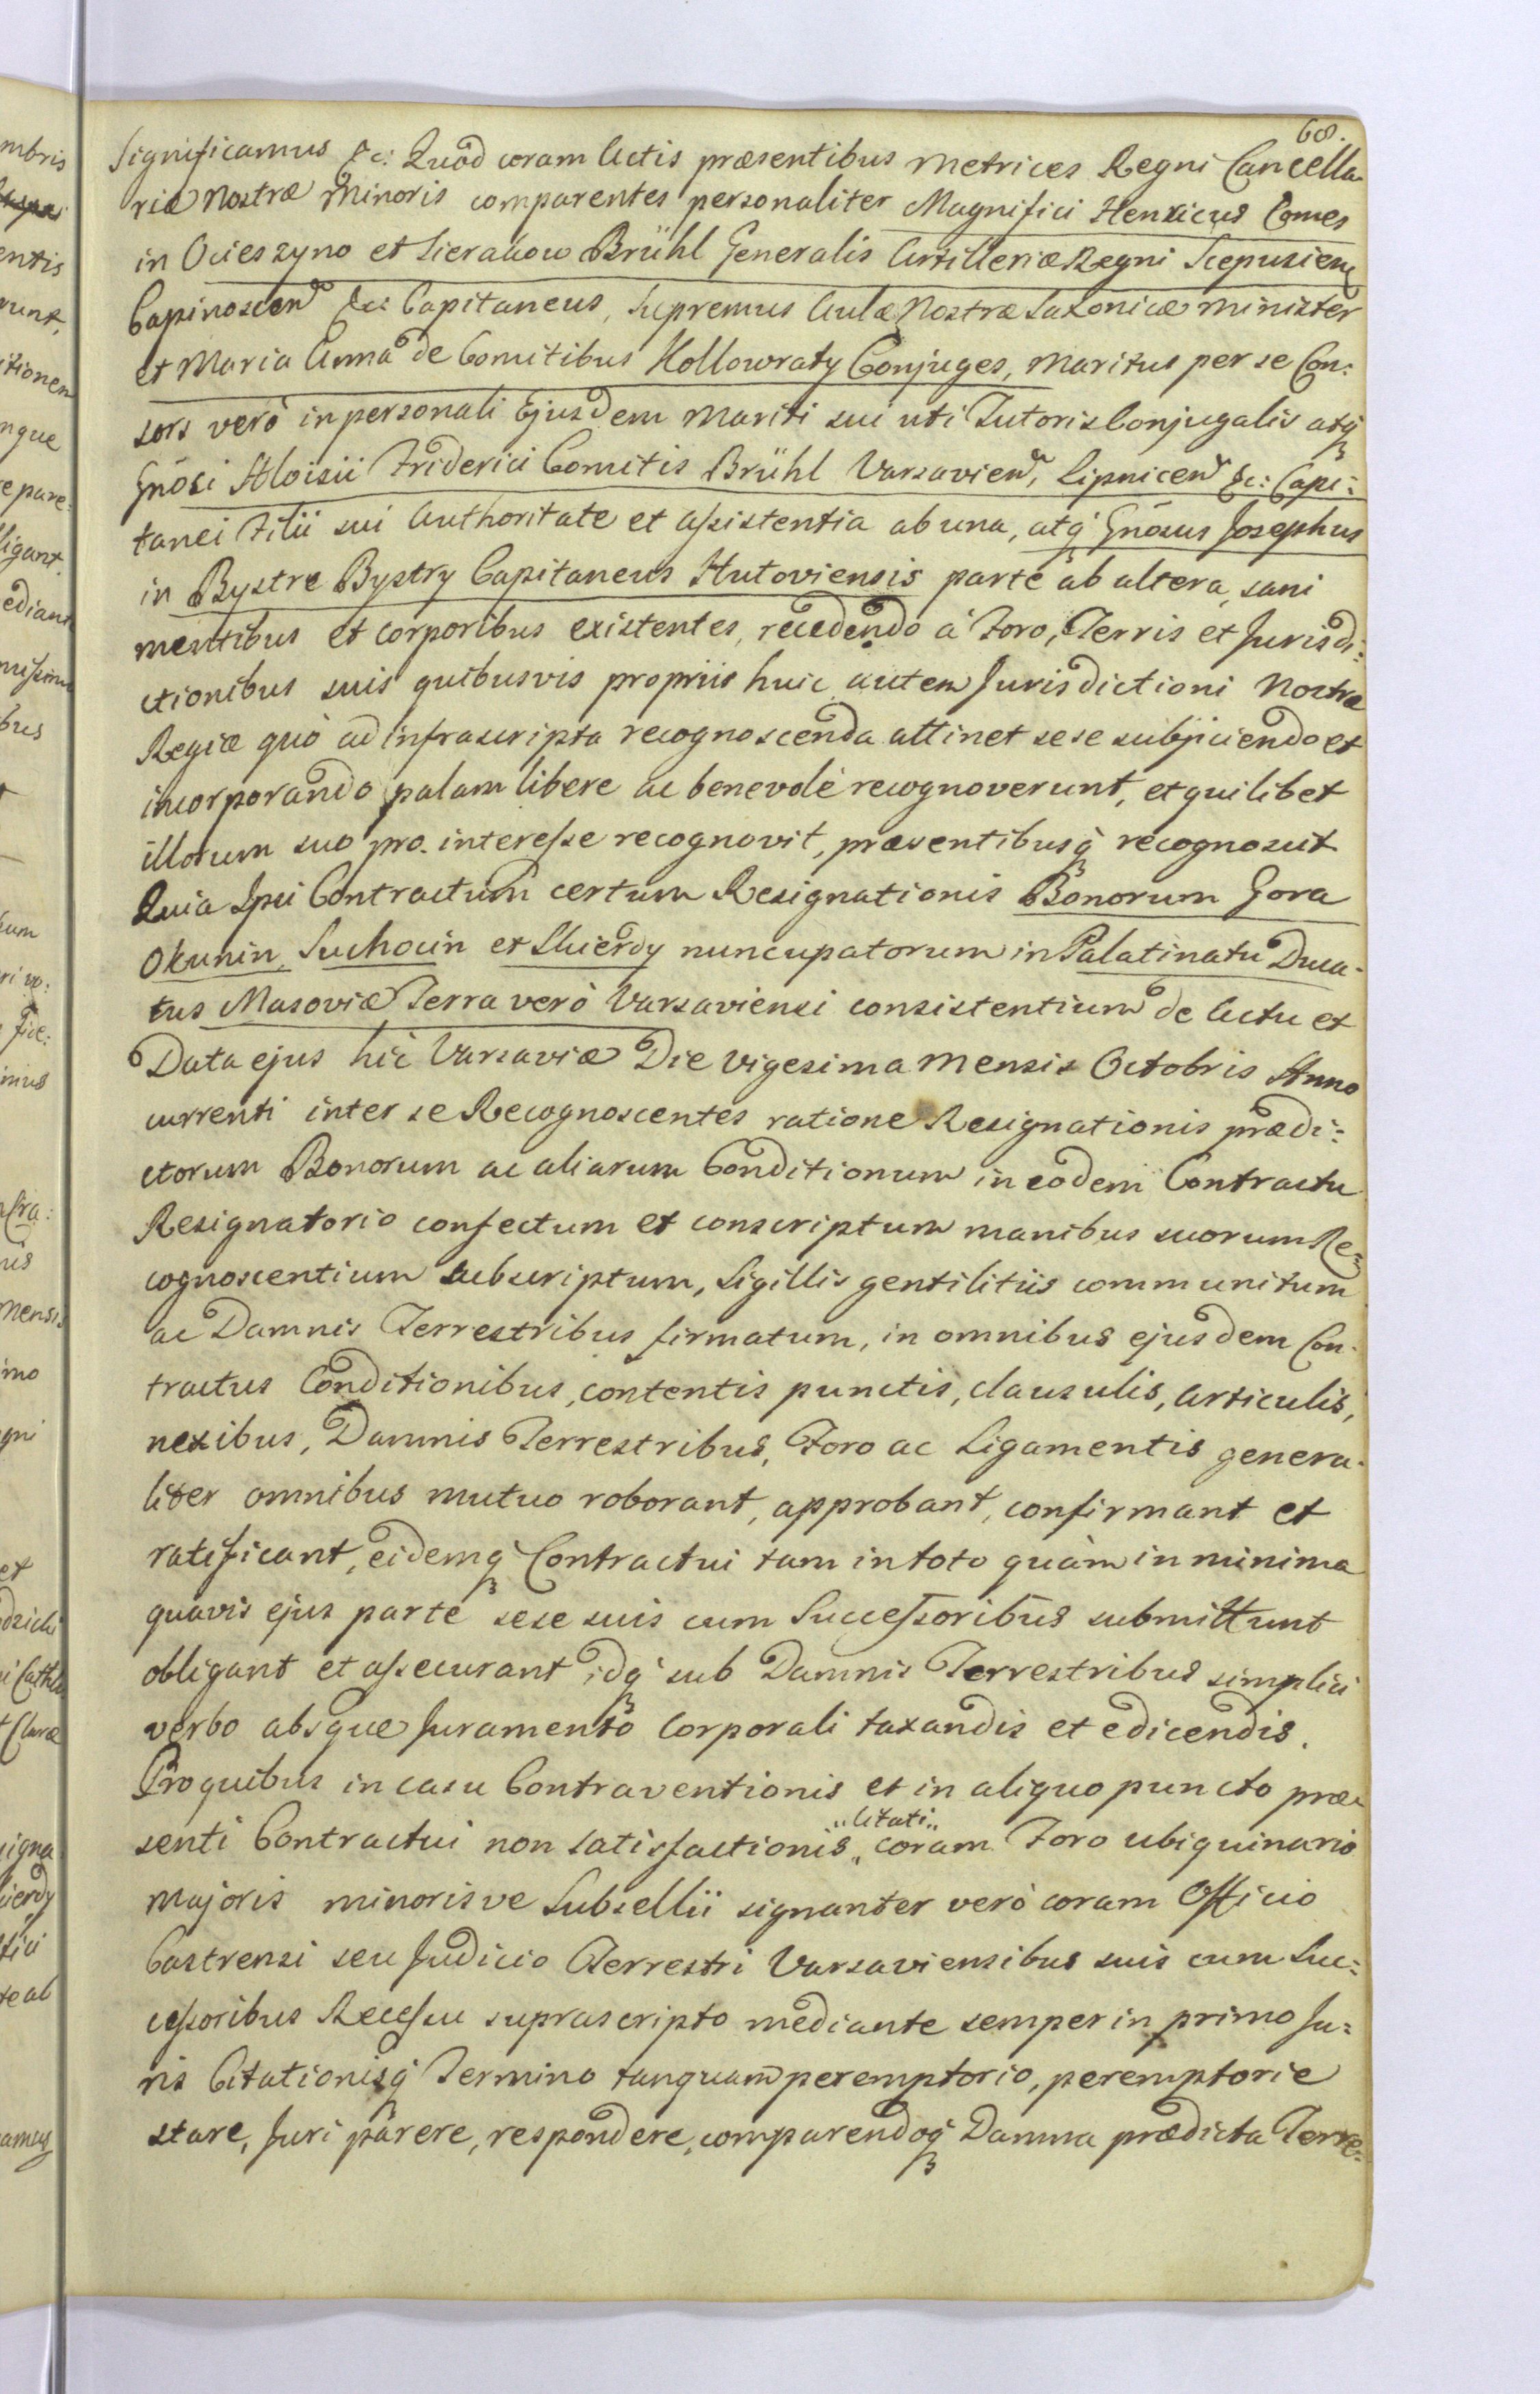 68.
Significamus &c: Quod coram Actis præsentibus Metrices Regni Cancella-
riæ Nostræ Minoris comparentes personaliter Magnifici Henricus Comes
in Ocieszyno et Sierakow Brühl Generalis Artilleriæ Regni Scepusien
Capinoscen &c: Capitaneus, Supremus Aulæ Nostræ Saxonicæ Minister
et Maria Anna de Comitibus Kollowraty Conjuges, Maritus per se Con:
sors verò in personali Ejusdem Mariti sui uti Tutoris Conjugalis atq
Gnōsi Aloisii Friderici Comitis Brühl Varsavien, Lipnicen &c: Capi:
tanei Filii sui Authoritate et assistentia ab una, atq Gnōsus Josephus
in Bystre Bystry Capitaneus Hutoviensis parte ab altera, sani
mentibus et corporibus existentes, recedendo à Foro, Terris et Jurisdi:
ctionibus suis quibusvis propriis huic autem Jurisdictioni Nostræ
Regiæ quò ad infrascripta recognoscenda attinet sese subjiciendo et
incorporando palam libere ac benevolè recognoverunt, et quilibet
illorum suo pro interesse recognovit, præsentibusq recognoscit
Quia Ipsi Contractum certum Resignationis Bonorum Gora
Okunin, Suchocin et Skierdy nuncupatorum in Palatinatu Duca-
tus Masoviæ Terra verò Varsaviensi consistentium de Actu et
Data ejus hic Varsaviæ Die vigesima Mensis Octobris Anno
currenti inter se Recognoscentes ratione Resignationis prædi:
ctorum Bonorum ac aliarum Conditionum in eodem Contractu
Resignatorio confectum et conscriptum manibus suorum Re=
cognoscentium subscriptum, Sigillis gentilitiis communitum
ac Damnis Terrestribus firmatum, in omnibus ejusdem Con-
tractus Conditionibus, contentis punctis, clausulis, Articulis,
nexibus, Damnis Terrestribus, Foro ac Ligamentis genera-
liter omnibus mutuo roborant, approbant, confirmant et
ratificant, eidemq Contractui tam in toto quàm in minima
quavis ejus parte sese suis cum Successoribus submittunt
obligant et assecurant idq sub Damnis Terrestribus simplici
verbo absque Juramento Corporali taxandis et edicendis.
Pro quibus in casu Contraventionis et in aliquo puncto præ
senti Contractui non satisfactionis „Citati„ coram Foro ubiquinario
Majoris minorisve Subsellii signanter verò coram Officio
Castrensi seu Judicio Terrestri Varsaviensibus suis cum Suc:
cessoribus Recessu suprascripto mediante semper in primo Ju:
ris Citationisq Termino tanquam peremptorio, peremptorie
stare, Juri parere, respondere, comparendoq Damna prædicta Terre-